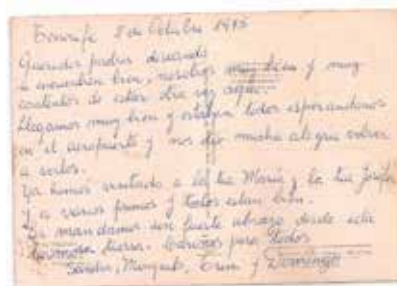 Tenerife 8 de Octubre 1975
Queridos padres deseando
se encuentren bien, nosotros muy bien y muy
contentos de estar otra vez aquí.
Llegamos muy bien y estaban todos esperandonos
en el aeropuerto y nos dio mucha alegria volver
a verlos.
Ya hemos visitado a la tia María y la tia Josefa
y a varios primos y todos estan bien.
Le mandamos un fuerte abrazo desde esta
hermosa tierra. Cariños para todos
Sandra, y Domingo